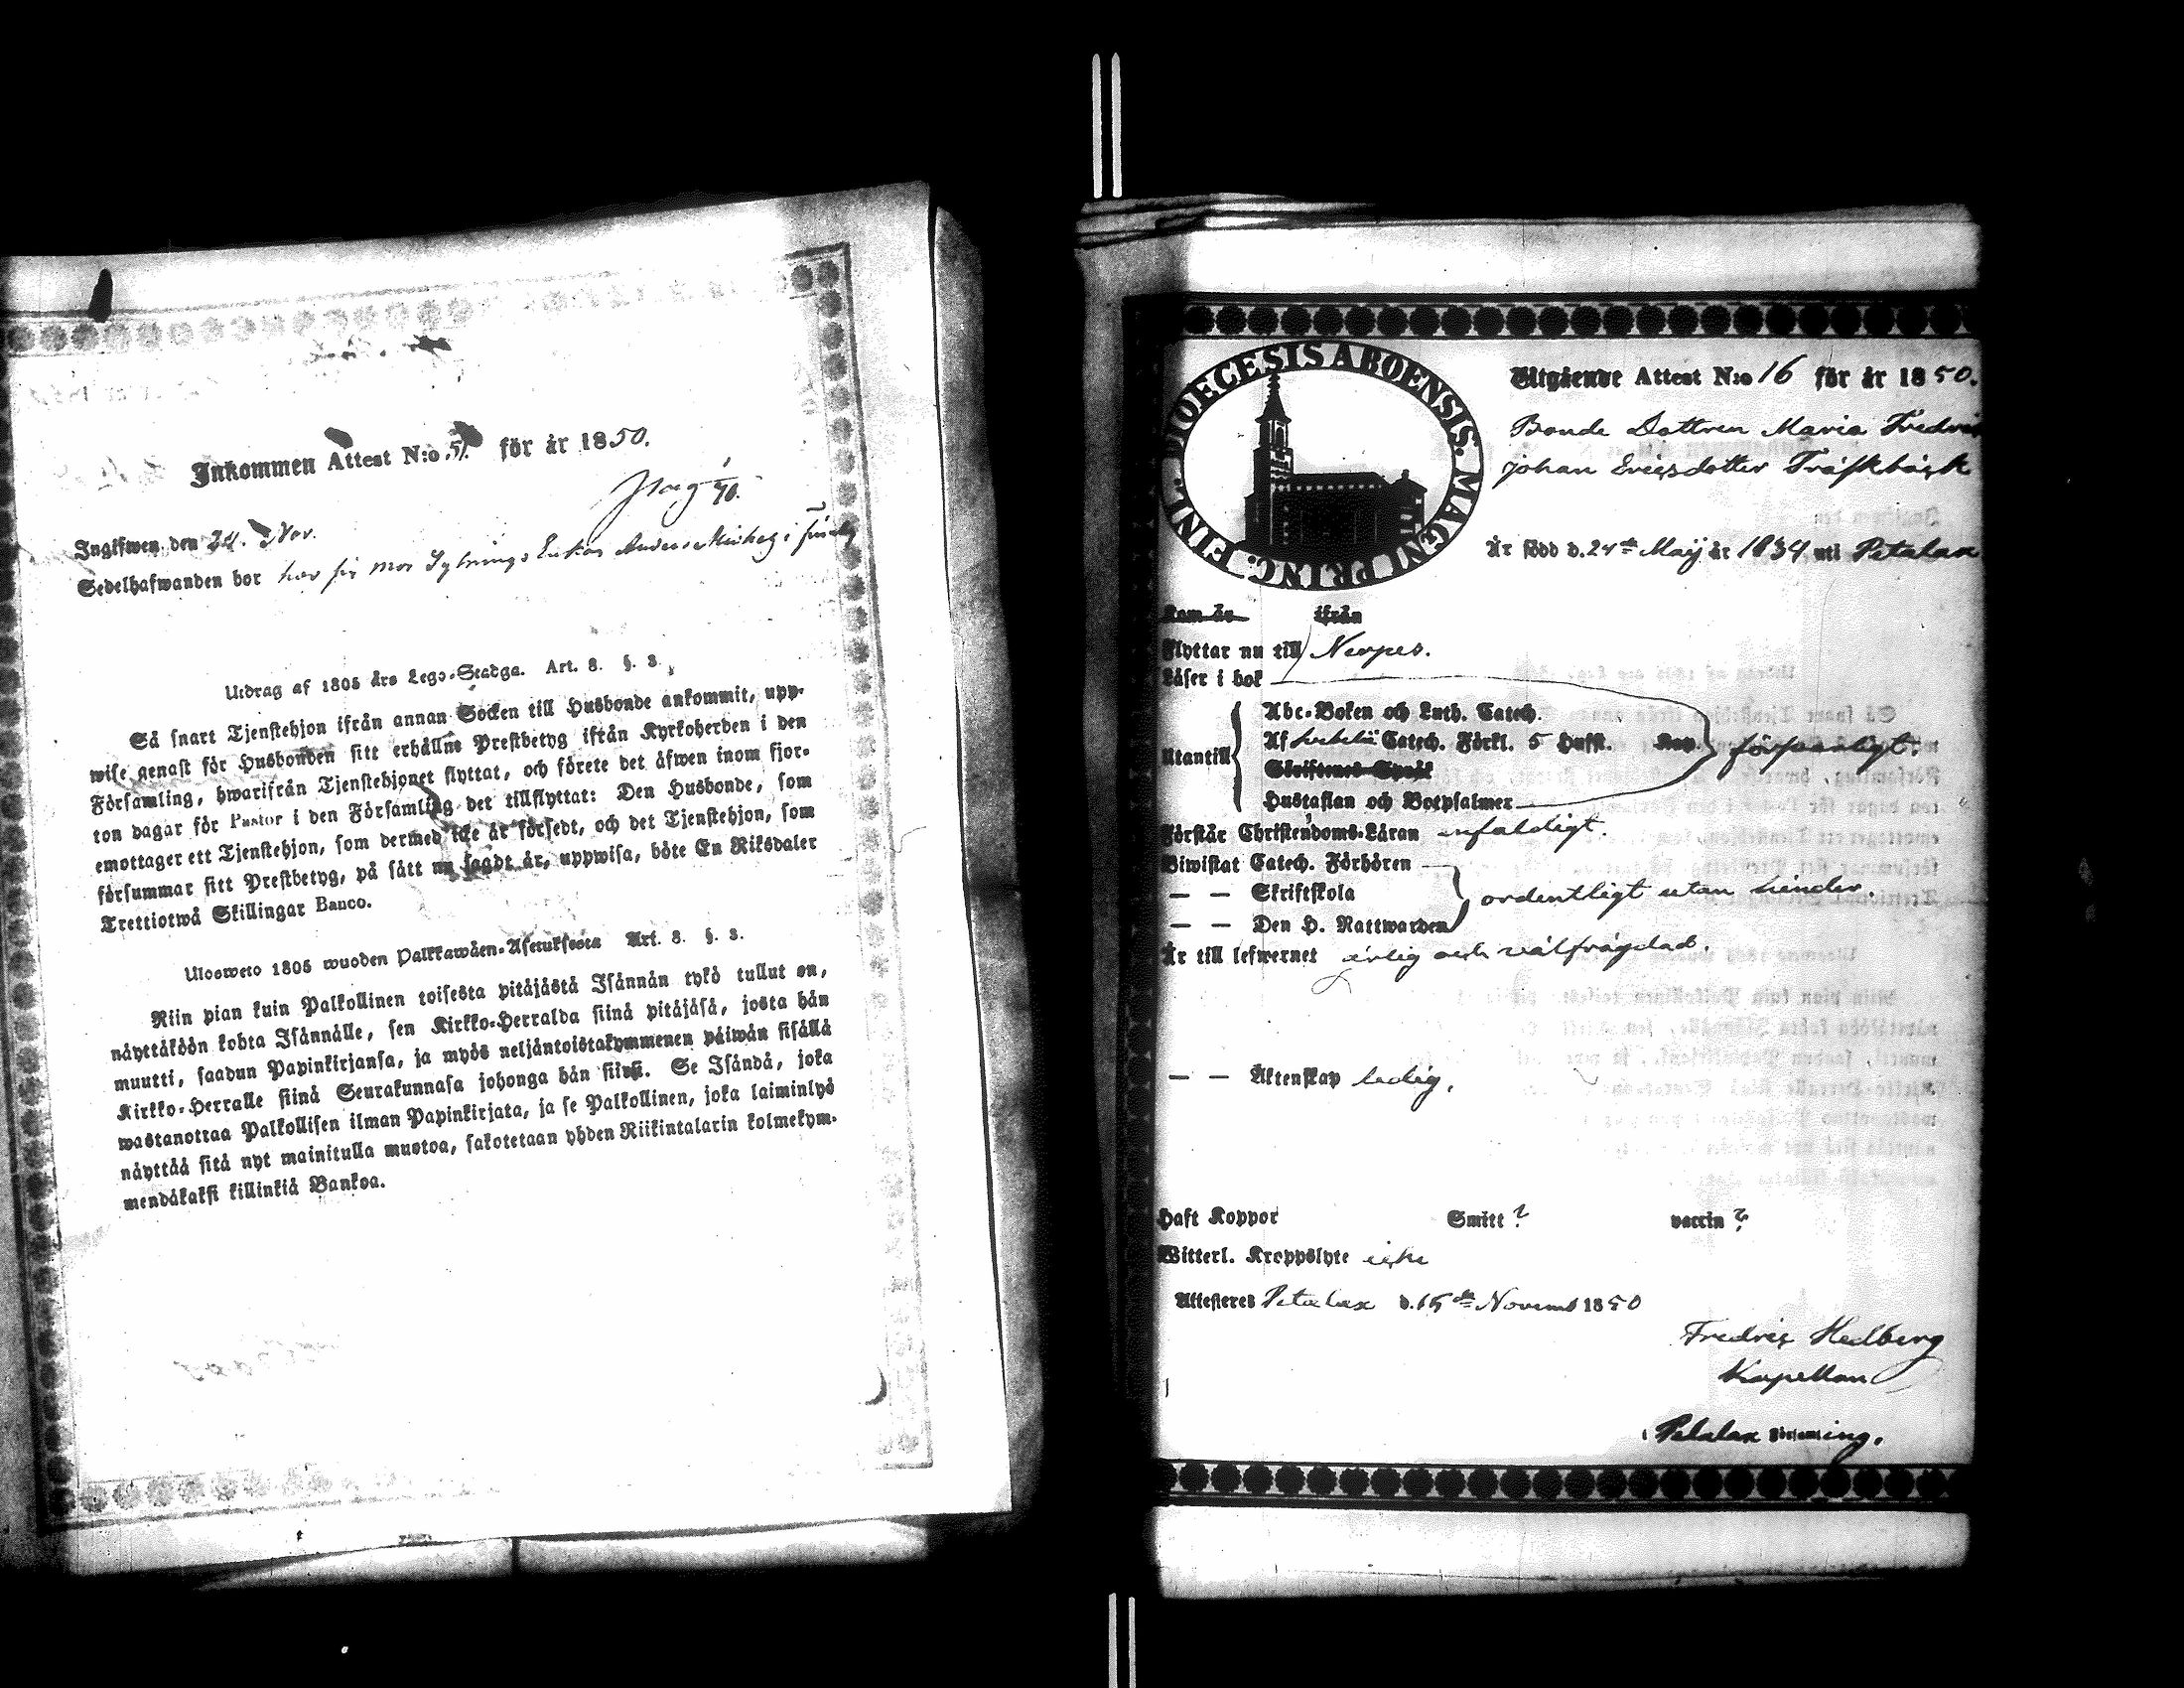 Inkommen Attest N:o 51. för år 1850.
Ingifwen den 24. Nov.
Sedelhafwanden bor hos sin mor
Utdrag af 1805 års Lego-Stadga. Art. 8. §. 3.
Så snart Tjenstehjon ifrån annan Socken till Husbonde ankommit, upp-
wise genast för Husbonden sitt erhållne Prestbetyg ifrån Kyrkoherden i den
Församling, hwarifrån Tjenstehjonet flyttat, och förete det åfwen inom fjor-
ton dagar för Pastor i den Församling det tillflyttat: Den Husbonde, som
emottager ett Tjenstehjon, som dermed icke år försedt, och det Tjenstehjon, som
försummar sitt Prestbetyg, på sått nu sagdt år, uppwisa, böte En Riksdaler
Trettiotwå Skillingar Banco.
Ulosweto 1805 wuoden Palkkawåen-Asetuksesta Art. 8. §. 3.
Niin pian kuin Palkollinen toisesta pitåjåstå Isånnån tykö tullut on,
nåyttåköön kohta Isånnålle, sen Kirkko-Herralda siinå pitåjåså, josta hån
muutti, saadun Papinkirjansa, ja myös neljåntoistakymmenen påiwån sisållå
Kirkko-Herralle siinå Seurakunnasa johonga hån siirsi. Se Isåndå, joka
wastanottaa Palkollisen ilman Papinkirjata, ja se Palkollinen, joka laiminlyö
nåyttåå sitå nyt mainitulla muotoa, sakotetaan yhden Riikintalarin kolmekym-
mendåkaksi killinkiå Bankoa.
DIOECESIS ABOENSIS. MAGNI PRINC. FINL.
Utgående Attest N:o 16 för år 1850.
Bonde Dottren Maria
Johan Ericsdotter Träskbäck
Är född d. 24de Maij år 1834 uti Petalax
Kom år ifrån
Flyttar nu till Nerpes.
Läser i bok
Utantill
Abc-Boken och Luth. Catech.
Af Catech. Förkl. 5 Hufst. Kap
Skriftenes Språk
Hustaflan och Botpsalmer
försvarligt.
Förstår Christendoms-Läran enfaldigt.
Biwistat Catech. Förhören
— — Skriftskola
— — Den H. Nattwarden
ordentligt utan hinder.
Är till lefwernet ärlig och välfrägdad.
— — Äktenskap ledig.
Haft Koppor Smitt ? vaccin ?
Witterl. Kroppslyte icke
Attesteres Petalax d. 15de Novemb 1850
Fredric Hedberg
Kapellan
i Petalax Församling.